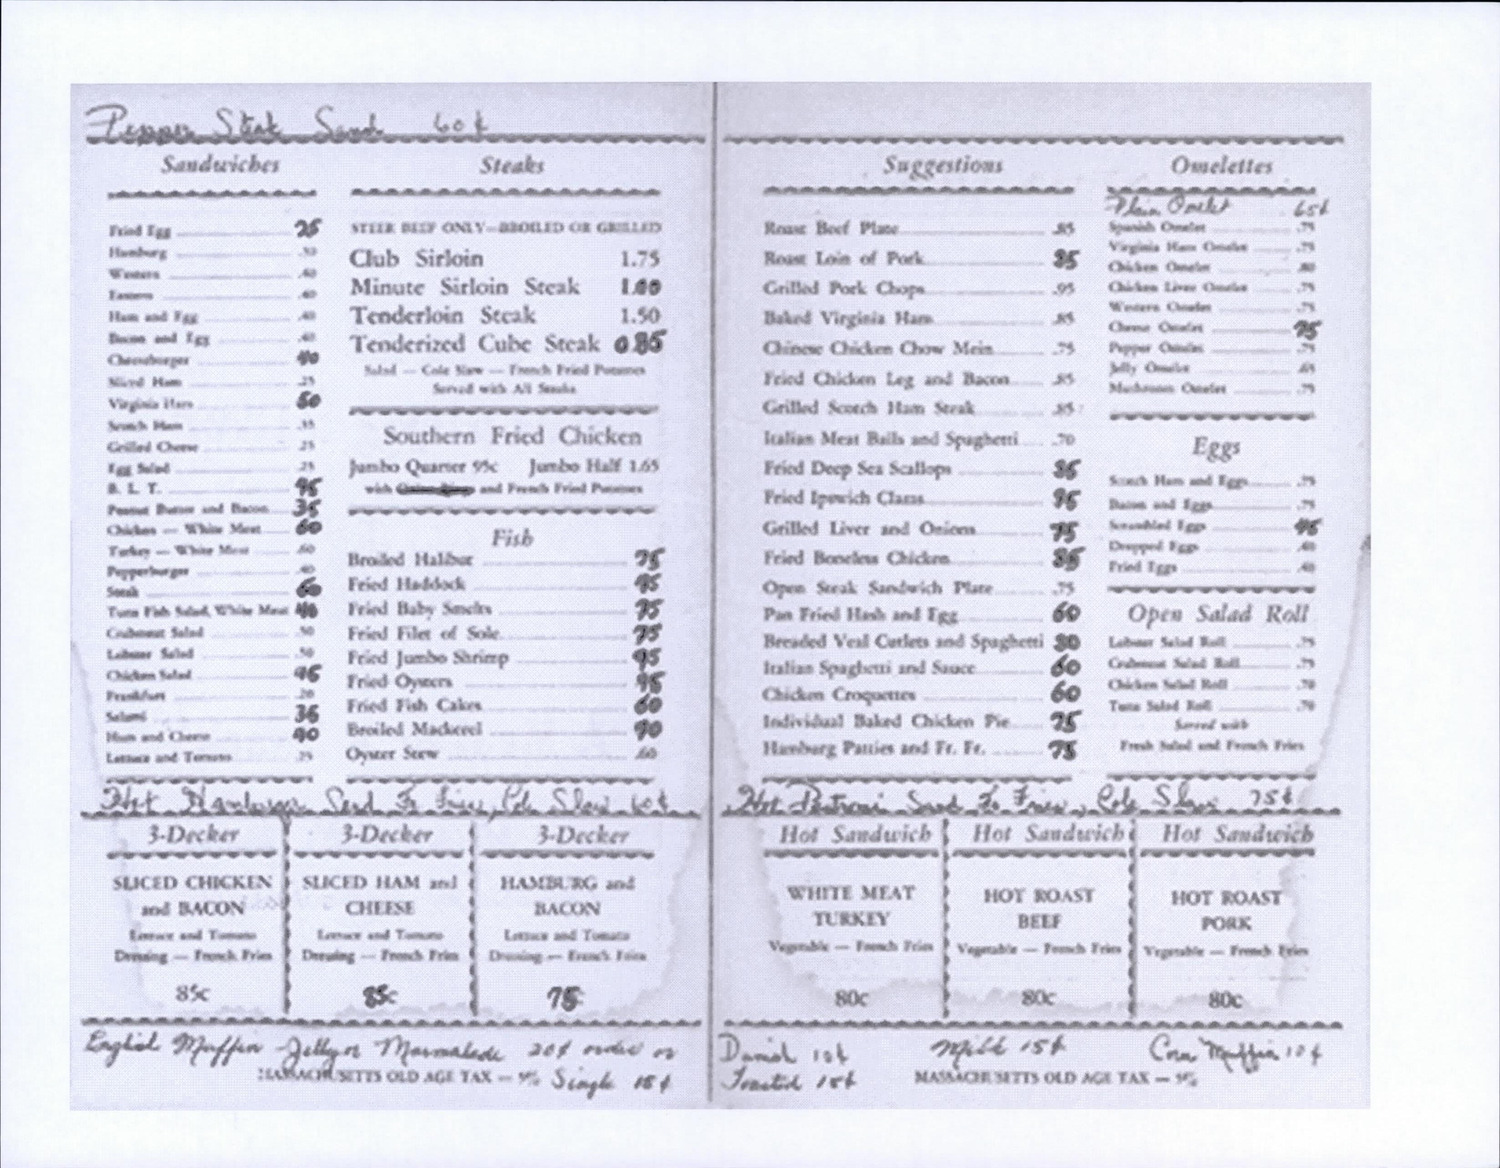 Pepper Steak Sand 60¢
Sandwiches
Fried Egg 25
Hamburg .30
Western .40
Eastern .40
Ham and Egg .40
Bacon and Egg .40
Cheeseburger 40
Sliced Ham .25
Virginia Ham 50
Scotch Ham .35
Grilled Cheese .25
Egg Salad .25
B. L. T. 45
Peanut Butter and Bacon 35
Chicken — White Meat 60
Turkey — White Meat .60
Pepperburger .40
Steak 60
Tuna Fish Salad, White Meat 40
Crabmeat Salad .50
Lobster Salad .50
Chicken Salad 45
Frankfurt .20
Salami 35
Ham and Cheese 40
Lettuce and Tomato .25
Steaks
STEER BEEF ONLY—BROILED OR GRILLED
Club Sirloin 1.75
Minute Sirloin Steak 1.00
Tenderloin Steak 1.50
Tenderized Cube Steak 0.85
Salad — Cole Slaw — French Fried Potatoes
Served with All Steaks
Southern Fried Chicken
Jumbo Quarter 95c Jumbo Half 1.65
with and French Fried Potatoes
Fish
Broiled Halibut 75
Fried Haddock
Fried Baby Smelts 75
Fried Filet of Sole 75
Fried Jumbo Shrimp 95
Fried Oysters
Fried Fish Cakes 60
Broiled Mackerel
Oyster Stew .60
Hot Hamburg Sand Fr Fries, Cole Slaw 60¢
3-Decker
SLICED CHICKEN
and BACON
Lettuce and Tomato
Dressing — French Fries
85c
3-Decker
SLICED HAM and
CHEESE
Lettuce and Tomato
Dressing — French Fries
85c
3-Decker
HAMBURG and
BACON
Lettuce and Tomato
Dressing — French Fries
75c
English Muffin Jelly or Marmalade 20¢ order or
MASSACHUSETTS OLD AGE TAX — 5% Single 15¢
Suggestions
Roast Beef Plate .85
Roast Loin of Pork 85
Grilled Pork Chops .95
Baked Virginia Ham .85
Chinese Chicken Chow Mein .75
Fried Chicken Leg and Bacon .85
Grilled Scotch Ham Steak .85
Italian Meat Balls and Spaghetti .70
Fried Deep Sea Scallops 85
Fried Ipswich Clams 95
Grilled Liver and Onions 75
Fried Boneless Chicken 85
Open Steak Sandwich Plate .75
Pan Fried Hash and Egg 60
Breaded Veal Cutlets and Spaghetti 80
Italian Spaghetti and Sauce 60
Chicken Croquettes 60
Individual Baked Chicken Pie 75
Hamburg Patties and Fr. Fr. 75
Omelettes
Plain Omelet 65¢
Spanish Omelet .75
Virginia Ham Omelet .75
Chicken Omelet .80
Chicken Liver Omelet .75
Western Omelet .75
Cheese Omelet 75
Pepper Omelet .75
Jelly Omelet .65
Mushroom Omelet .75
Eggs
Scotch Ham and Eggs .75
Bacon and Eggs .75
Scrambled Eggs 45
Dropped Eggs .40
Fried Eggs .40
Open Salad Roll
Lobster Salad Roll .75
Crabmeat Salad Roll .75
Chicken Salad Roll .70
Tuna Salad Roll .70
Served with
Fresh Salad and French Fries
Hot Pastromi Sand Fr Fries, Cole Slaw 75¢
Hot Sandwich
WHITE MEAT
TURKEY
Vegetable — French Fries
80c
Hot Sandwich
HOT ROAST
BEEF
Vegetable — French Fries
80c
Hot Sandwich
HOT ROAST
PORK
Vegetable — French Fries
80c
Danish 10¢ Milk 15¢ Corn Muffin 10¢
Toasted 15¢ MASSACHUSETTS OLD AGE TAX — 5%